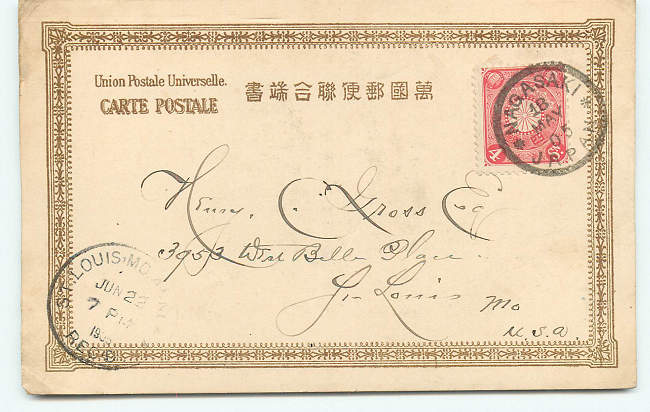 Union Postale Universelle.
CARTE POSTALE
書端合聯便郵國萬
4 Sn
NAGASAKI
18
MAY
05
JAPAN
C. Gross Esq
3953 West Belle Place
St. Louis Mo
U.S.A.
ST. LOUIS, MO.
JUN 23
7 PM
1905
REC'D